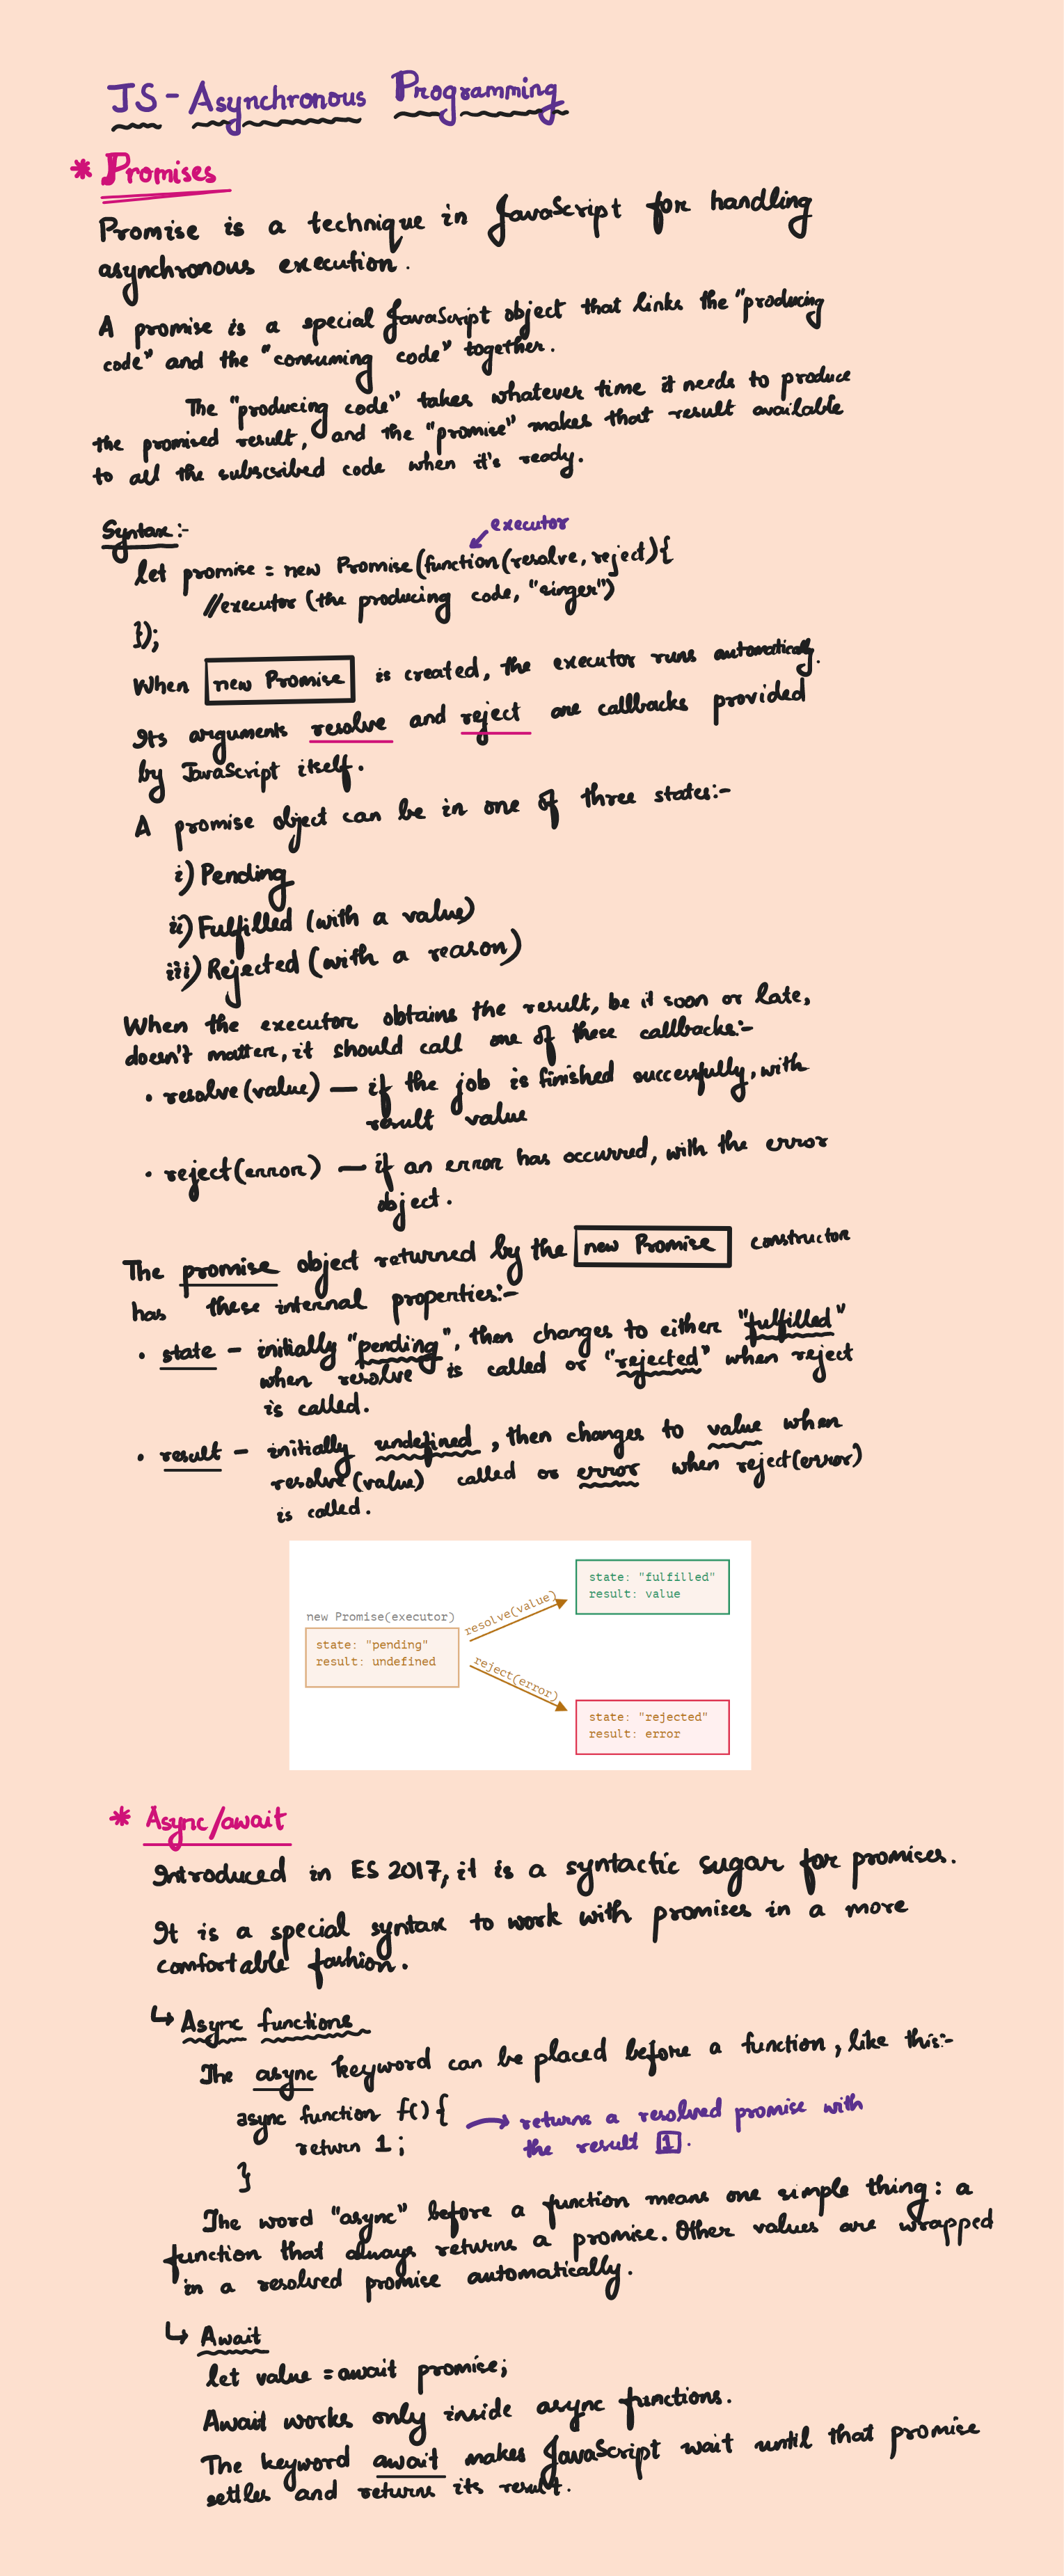 JS - Asynchronous Programming
* Promises
Promise is a technique in JavaScript for handling
asynchronous execution.
A promise is a special JavaScript object that links the "producing
code" and the "consuming code" together.
The "producing code" takes whatever time it needs to produce
the promised result, and the "promise" makes that result available
to all the subscribed code when it's ready.
Syntax:-
executor
let promise = new Promise(function(resolve, reject){
//executor (the producing code, "singer")
});
When new Promise is created, the executor runs automatically.
Its arguments resolve and reject are callbacks provided
by JavaScript itself.
A promise object can be in one of three states:-
i) Pending
ii) Fulfilled (with a value)
iii) Rejected (with a reason)
When the executor obtains the result, be it soon or late,
doesn't matter, it should call one of these callbacks:-
• resolve(value) — if the job is finished successfully, with
result value
• reject(error) — if an error has occurred, with the error
object.
The promise object returned by the new Promise constructor
has these internal properties:-
• state - initially "pending", then changes to either "fulfilled"
when resolve is called or "rejected" when reject
is called.
• result - initially undefined, then changes to value when
resolve(value) called or error when reject(error)
is called.
new Promise(executor)
state: "pending"
result: undefined
resolve(value)
reject(error)
state: "fulfilled"
result: value
state: "rejected"
result: error
* Async/await
Introduced in ES 2017, it is a syntactic sugar for promises.
It is a special syntax to work with promises in a more
comfortable fashion.
↳ Async functions
The async keyword can be placed before a function, like this:-
async function f() { → returns a resolved promise with
return 1; the result 1.
}
The word "async" before a function means one simple thing: a
function that always returns a promise. Other values are wrapped
in a resolved promise automatically.
↳ Await
let value = await promise;
Await works only inside async functions.
The keyword await makes JavaScript wait until that promise
settles and returns its result.